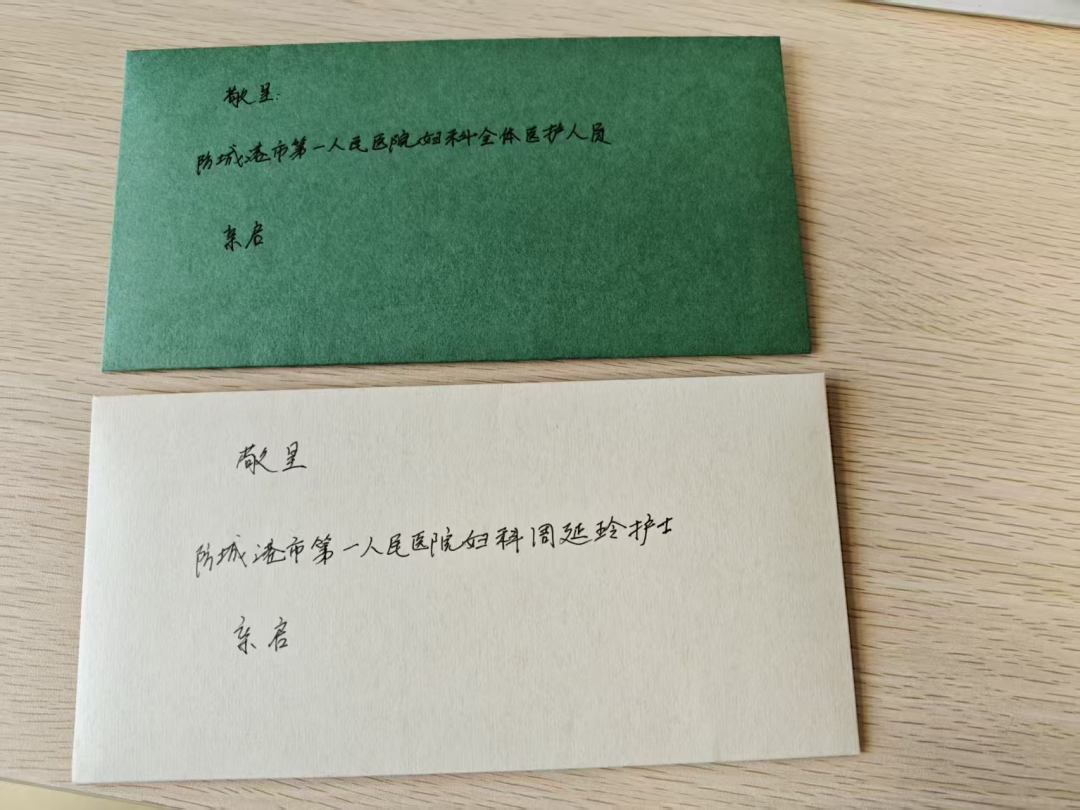 敬呈:
防城港市第一人民医院妇科全体医护人员
亲启
敬呈
防城港市第一人民医院妇科周延玲护士
亲启